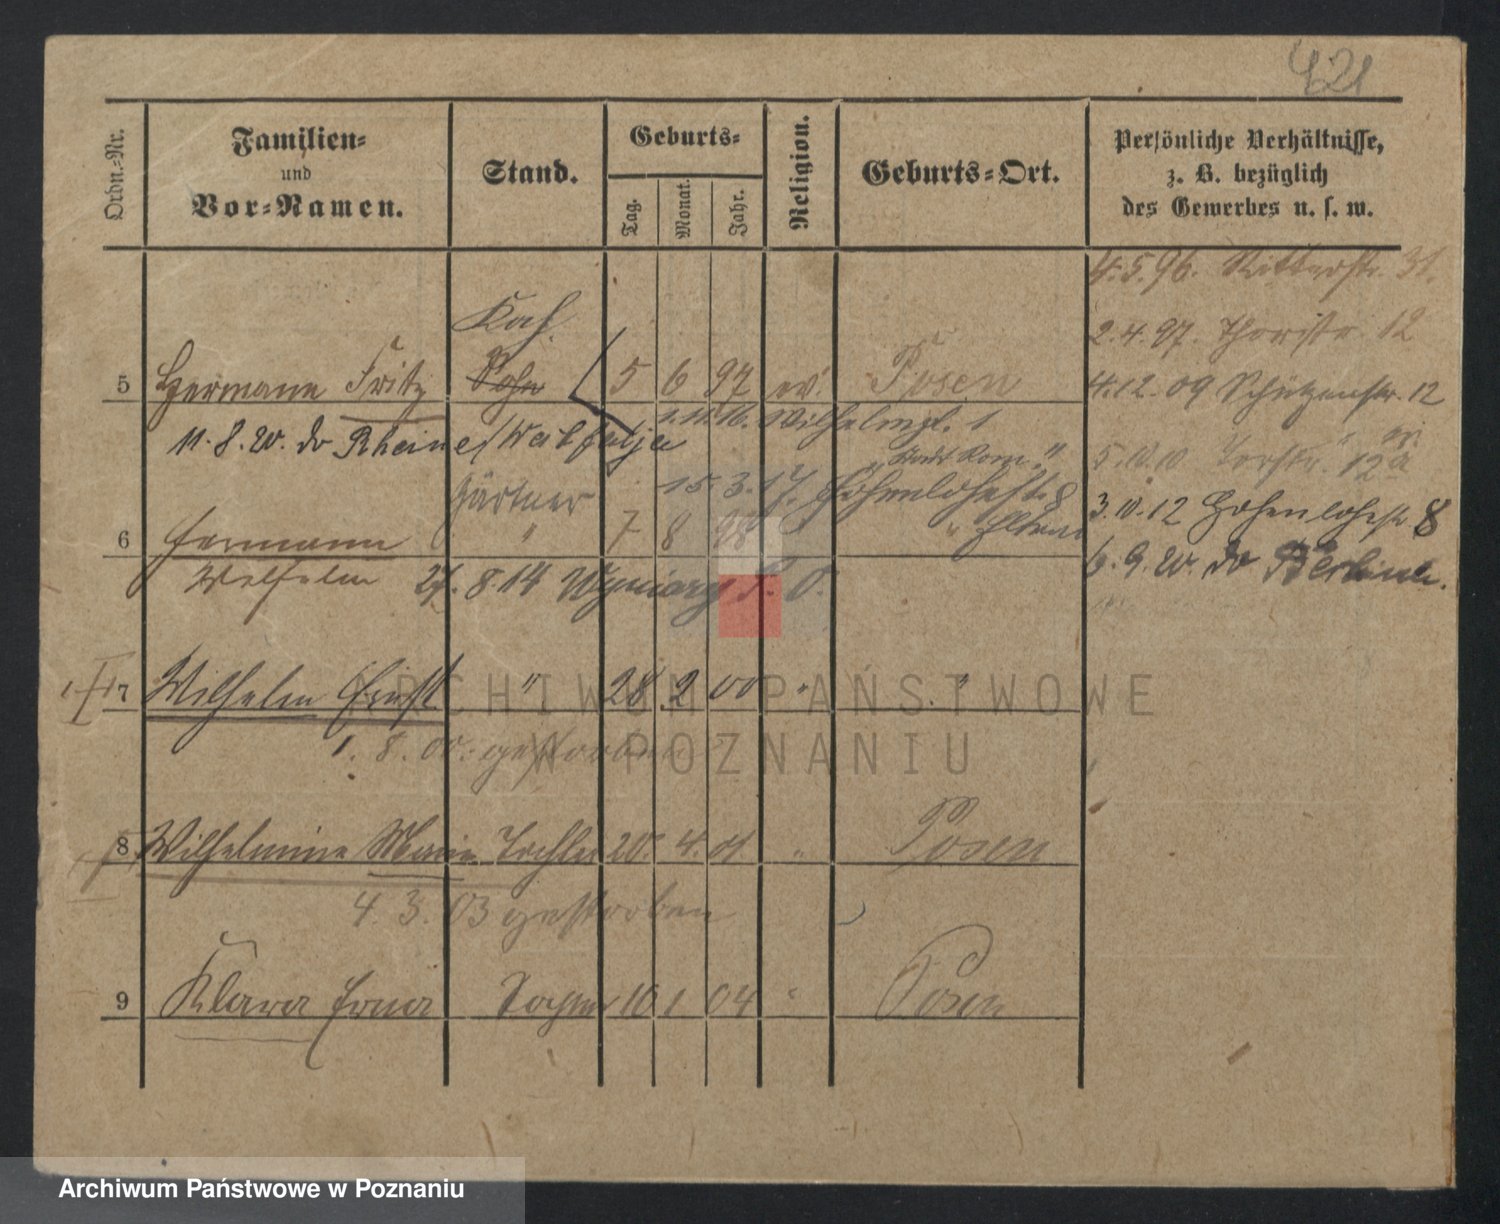 421
Ordn.-Nr.
Familien-
und
Vor-Namen.
Stand.
Geburts-
Tag.
Monat.
Jahr.
Religion.
Geburts-Ort.
Persönliche Verhältnisse,
z. B. bezüglich
des Gewerbes u. s. w.
4.5.96. Ritterstr. 31.
2.4.97. Thorstr. 12
Koch
5 Hermann Fritz Sohn 5 6 97 ev. Posen
4.12.09 Schützenstr. 12
1.11.16. Wilhelmpl. 1
11.8.20. do Rheine/Westfalja
5.10.10 Torstr. 12a
Gärtner 15.3.17. Hohenlohestr. 8
3.10.12 Hohenlohestr 8
6 Hermann " 7 8 98 " Eltern
Wilhelm 27.8.14 Winiary P. O.
6.9.20. do Berlin.
7 Wilhelm Ernst " 28 2 00 " "
1.8.00. gestorben
8 Wilhelmine Marie Tochter 20. 4. 01 " Posen
4.3.03 gestorben
9 Klara Erna Tochter 10 1 04 " Posen
ARCHIWUM PAŃSTWOWE
W POZNANIU
Archiwum Państwowe w Poznaniu